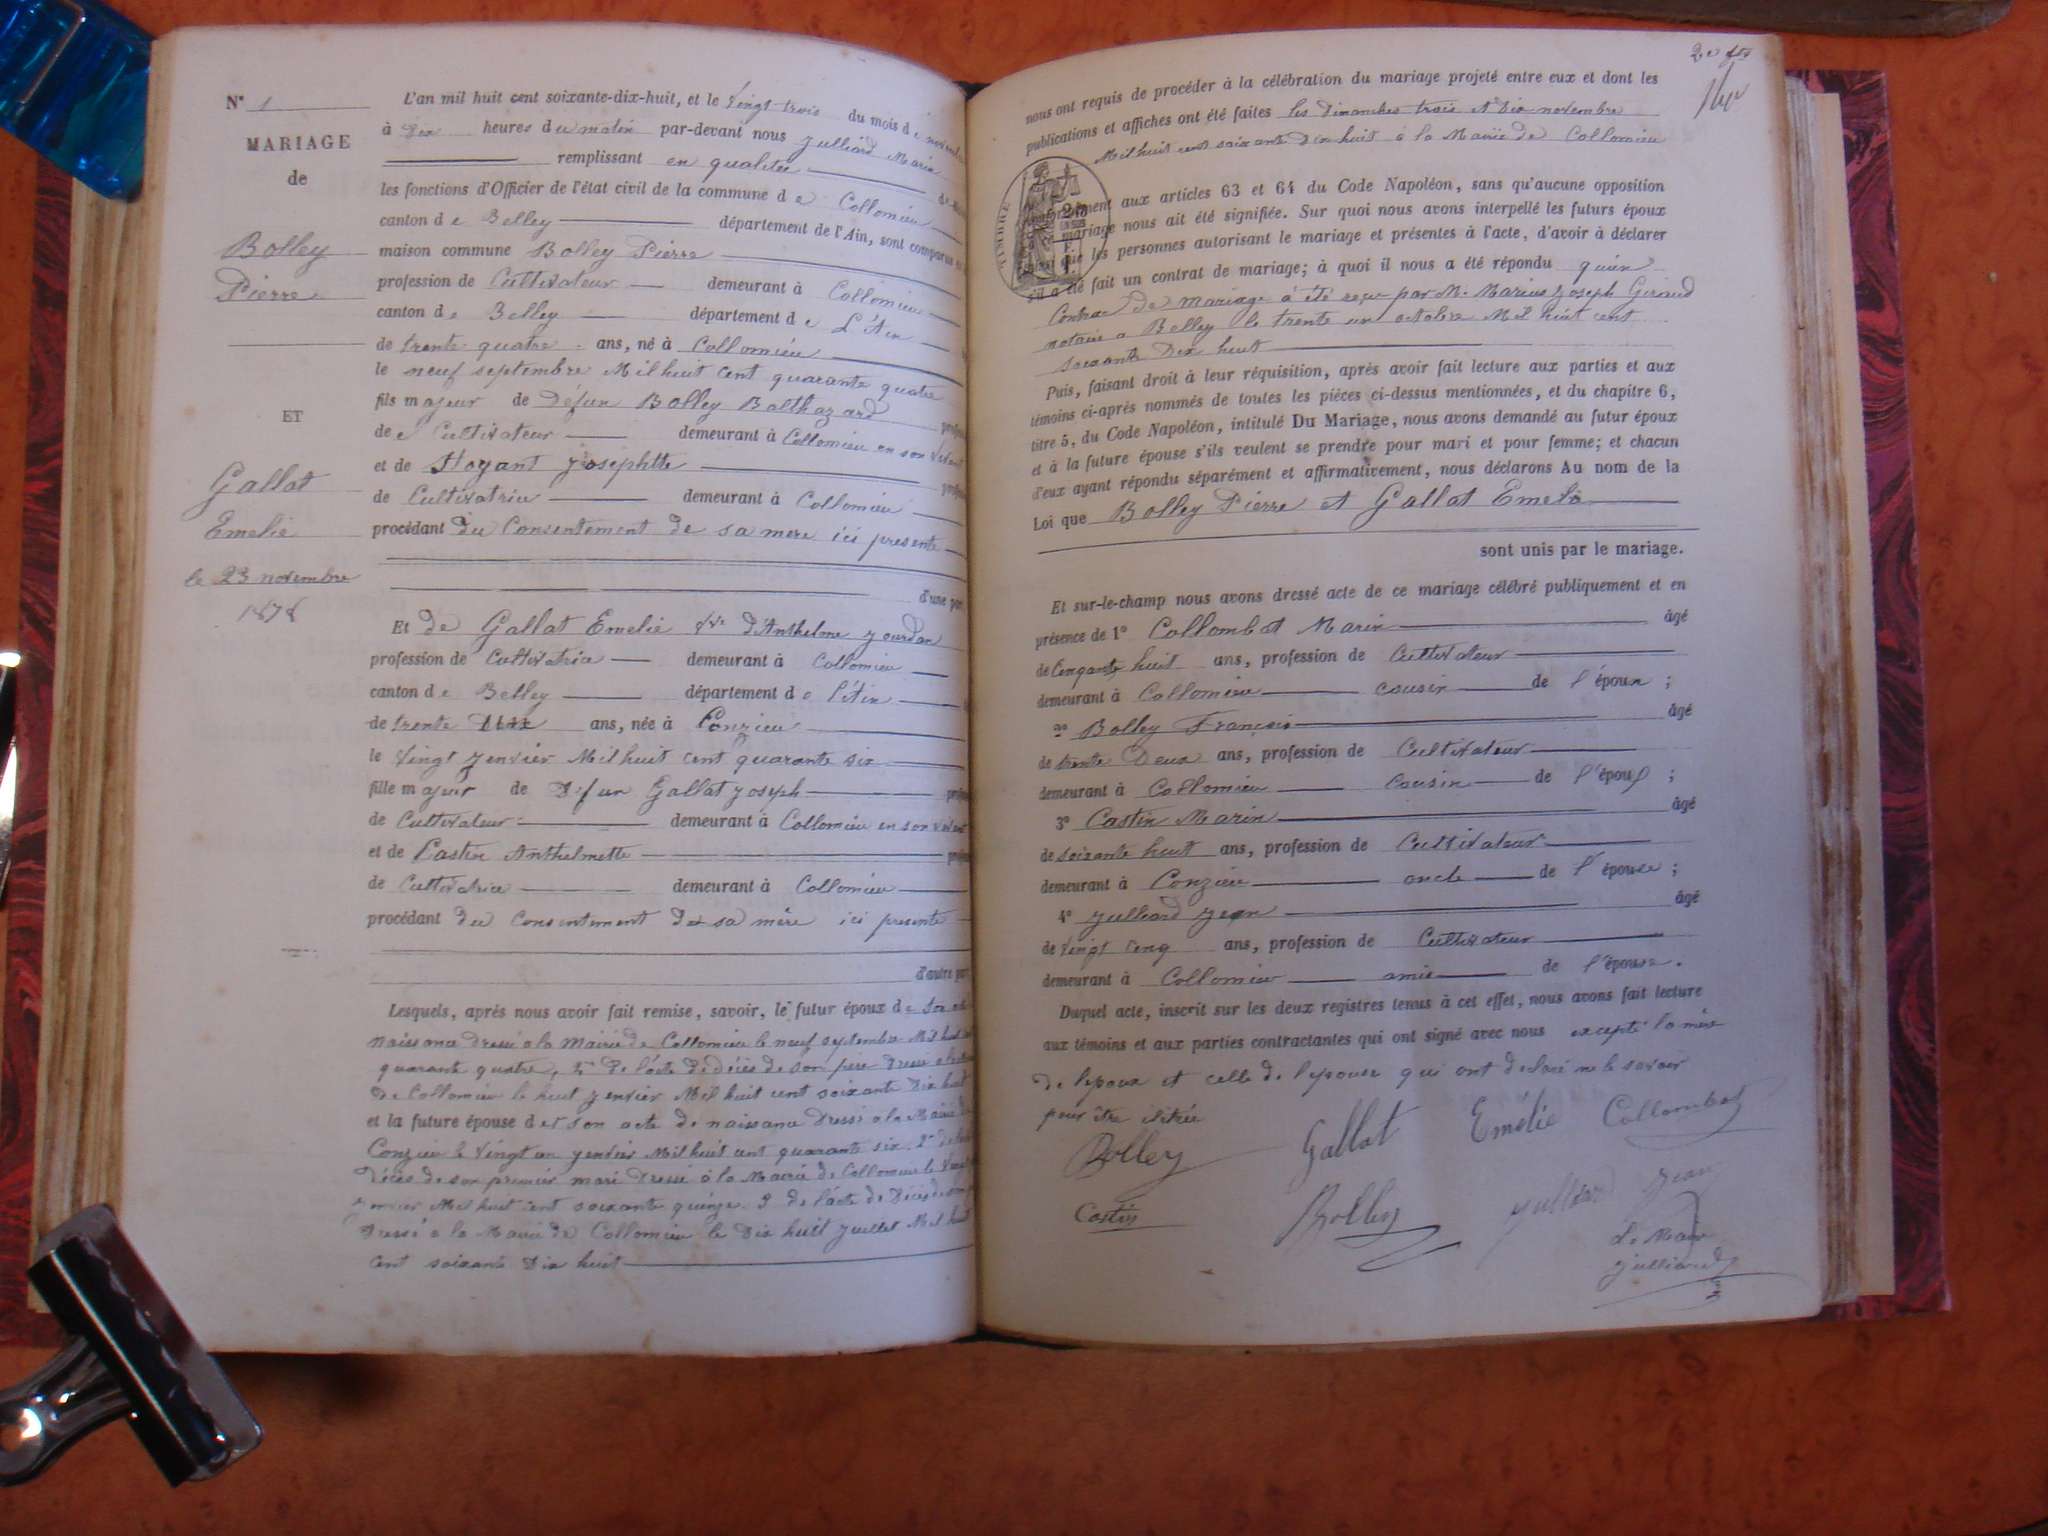 N° 1
MARIAGE
de
Bolley
Pierre
ET
Gallat
Emelie
le 23 novembre
1878
L'an mil huit cent soixante-dix-huit, et le Vingt trois du mois de
à Dix heures du matin par-devant nous Julliard Marin
remplissant en qualitée de
les fonctions d'Officier de l'état civil de la commune de Collomieu
canton de Belley département de l'Ain, sont comparus
maison commune Bolley Pierre
profession de Cultivateur demeurant à Collomieu
canton de Belley département de L'Ain
de trente quatre ans, né à Collomieu
le neuf septembre Mil huit cent quarante quatre
fils majeur de Défun Bolley Balthazard
de Cultivateur demeurant à Collomieu en son vivant
et de Hoyant Joséphtte
de Cultivatrice demeurant à Collomieu
procédant du Consentement de sa mere ici presente
d'une part
Et de Gallat Emelie Vve d'Anthelme Jourdan
profession de Cultivatrice demeurant à Collomieu
canton de Belley département de l'Ain
de trente deux ans, née à Conzieu
le Vingt Jenvier Mil huit cent quarante six
fille majeur de Défun Gallat Joseph
de Cultivateur demeurant à Collomieu en son vivant
et de Castin Anthelmette
de Cultivatrice demeurant à Collomieu
procédant du Consentement de sa mère ici presente
d'autre part
Lesquels, après nous avoir fait remise, savoir, le futur époux de Son acte
naissance dressé a la Mairie de Collomieu le neuf septembre Mil huit cent
quarante quatre, 2° De l'acte de décès de son père Dressé a la
De Collomieu le huit Jenvier Mil huit cent soixante Dix huit
et la future épouse de son acte de naissance Dressé a la Mairie de
Conzieu le Vingt un Jenvier Mil huit cent quarante six. 2° De l'acte
Décès de son premier mari Dressé à la Mairie de Collomieu le Vingt
Jenvier Mil huit cent soixante quinze. 3 de l'acte de Décès de son
Dressé a la Mairie De Collomieu le Dix huit Juillet Mil huit
cent soixante Dix huit
nous ont requis de procéder à la célébration du mariage projeté entre eux et dont les
publications et affiches ont été faites les Dimanches trois et Dix novembre
Mil huit cent soixante Dix huit à la Mairie de Collomieu
TIMBRE
conformément aux articles 63 et 64 du Code Napoléon, sans qu'aucune opposition
à ce mariage nous ait été signifiée. Sur quoi nous avons interpellé les futurs époux
ainsi que les personnes autorisant le mariage et présentes à l'acte, d'avoir à déclarer
s'il a été fait un contrat de mariage; à quoi il nous a été répondu quün
Contrac De mariage à été reçu par M. Marius Joseph Giraud
notaire a Belley le trente un octobre Mil huit cent
soixante Dix huit
Puis, faisant droit à leur réquisition, après avoir fait lecture aux parties et aux
témoins ci-après nommés de toutes les pièces ci-dessus mentionnées, et du chapitre 6,
titre 5, du Code Napoléon, intitulé Du Mariage, nous avons demandé au futur époux
et à la future épouse s'ils veulent se prendre pour mari et pour femme; et chacun
d'eux ayant répondu séparément et affirmativement, nous déclarons Au nom de la
Loi que Bolley Pierre et Gallat Emelie
sont unis par le mariage.
Et sur-le-champ nous avons dressé acte de ce mariage célébré publiquement et en
présence de 1° Collombet Marin âgé
de Cinquante huit ans, profession de Cultivateur
demeurant à Collomieu cousin de l'époux ;
2° Bolley François âgé
de trente Deux ans, profession de Cultivateur
demeurant à Collomieu cousin de l'époux ;
3° Castin Marin âgé
de soixante huit ans, profession de Cultivateur
demeurant à Conzieu oncle de l'épouse ;
4° Julliard Jean âgé
de Vingt Cinq ans, profession de Cultivateur
demeurant à Collomieu amie de l'épouse.
Duquel acte, inscrit sur les deux registres tenus à cet effet, nous avons fait lecture
aux témoins et aux parties contractantes qui ont signé avec nous excepté la mère
De l'epoux et celle de l'epouse qui ont declaré ne le savoir
pour être ilitrée
Bolley Gallat Emélie Collombet
Castin Bolley Julliard Jean
Le Maire
Julliard